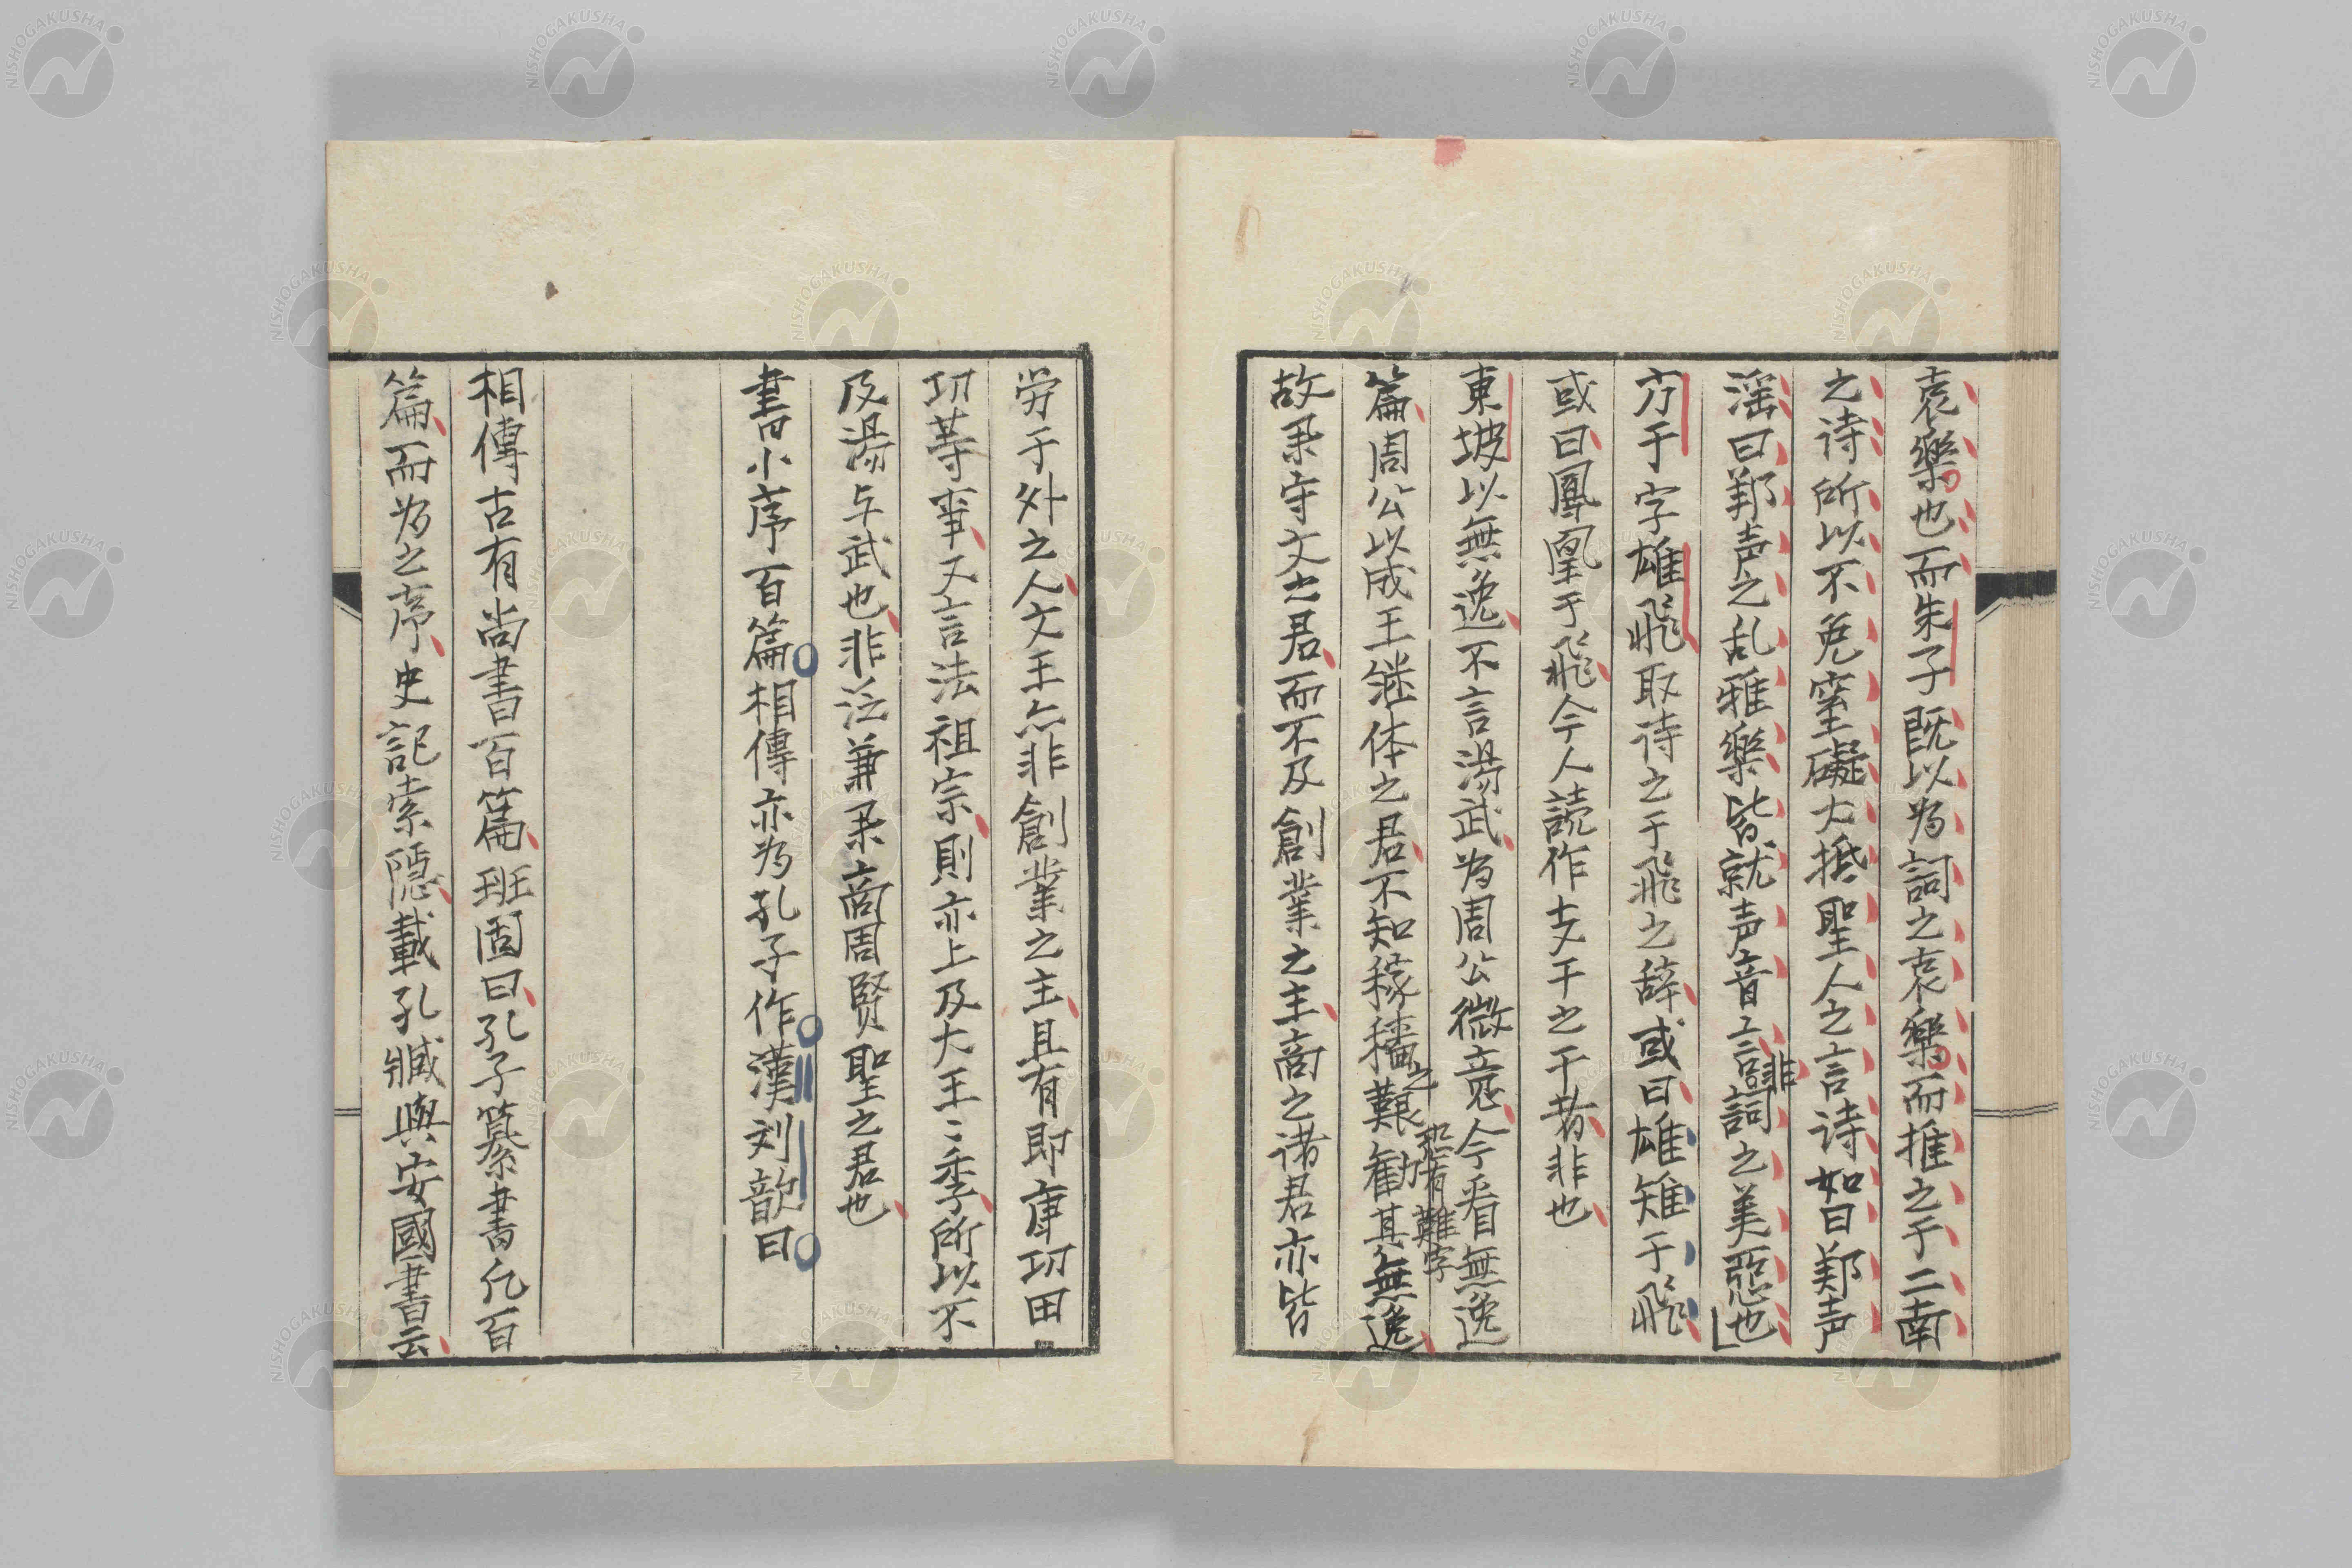 哀樂也而朱子既以為詞之哀樂而推之于二南
之诗所以不免窒礙大抵聖人之言诗如曰鄭声
淫曰鄭声之乱雅樂皆就声音上言非詞之美惡也
方于字雄飛取诗之于飛之辞或曰雄雉于飛
或曰鳳凰于飛今人読作支干之干者非也
東坡以無逸不言湯武為周公微意今看無逸
篇周公以成王継体之君不知稼穡之艱勧其無逸
故又守文之君而不及創業之主商之诸君亦皆
労于外之人文王亦非創業之主且有即康功田
功等事又言法祖宗則亦上及大王王季所以不
及湯与武也非泛兼及商周賢聖之君也
書小序百篇相傳亦為孔子作漢刘歆曰
相傳古有尚書百篇班固曰孔子纂書凡百
篇而為之序史記索隠載孔臧與安國書云